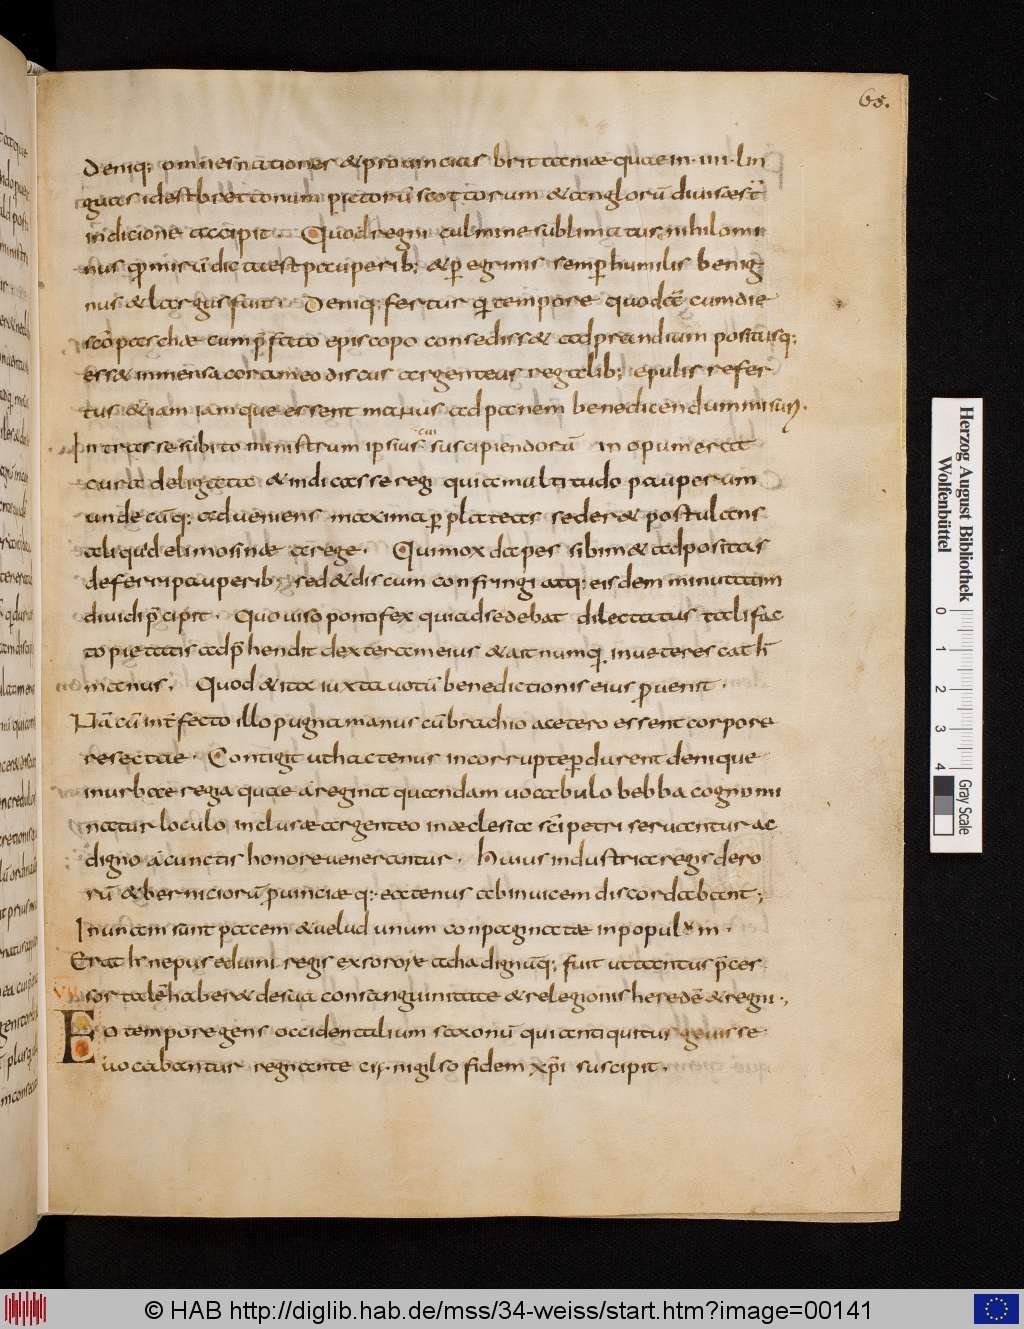 65.
Deniq; omnes nationes & prouincias brittaniæ quae in ·iiii· lin
guas id est brettonum pictorū scottorum & anglorū diuisa est
in dicione accipit · Quod regni culmine sublimatus nihilomi
nus qđ mirū dictu est pauperib; & peregrinis semp humilis benig
nus & largus fuit · Deniq; fertur qđ tempore quodā cum die
scō paschæ cum pfato episcopo consediss& ad prandium positusq;
ess& in mensa coram eo discus argenteus regalib; epulis refer
tus & iam iamque essent manus ad panem benedicendum misuri ·
Intrasse subito ministrum ipsius cui suscipiendorū inopum erat
cura deligata & indicasse regi quia multitudo pauperum
undecūq; adueniens maxima p plateas seder& postulans
aliquid elimosinæ a rege · Qui mox dapes sibim& adpositas
deferri pauperib; sed & discum confringi atq; eisdem minutatim
diuidi pcipit · Quo uiso pontifex qui adsedebat dilectatus tali fac
to pietatis adphendit dexteram eius & ait numq inueteres cat h
manus · Quod & ita iuxta uotū benedictionis eius puenit ·
Nā cū intfecto illo pugna manus cū brachio a cetero essent corpore
resectae · Contigit ut hactenus incorrupte pdurent denique
in urbae regia quae a regina quandam uocabulo bebba cognomi
natur loculo inclusæ argenteo in æclesia sci petri seruantur ac
digno a cunctis honore uenerantur · Huius industria regis dero
rū & berniciorū puinciæ q; eatenus ab inuicem discordabant;
In unam sunt pacem & uelud unum conpaginatæ in populum ·
Erat h nepus eduini regis ex sorore acha dignūq; fuit ut tantus pces
sor talē haber& de sua consanguinitate & relegionis heredē & regni ·,
Eo tempore gens occidentalium saxonū qui antiquitus geuisse
uocabantur regnante cynigilso fidem xpi suscipit ·
Herzog August Bibliothek
Wolfenbüttel
0 1 2 3 4
Gray Scale
© HAB http://diglib.hab.de/mss/34-weiss/start.htm?image=00141